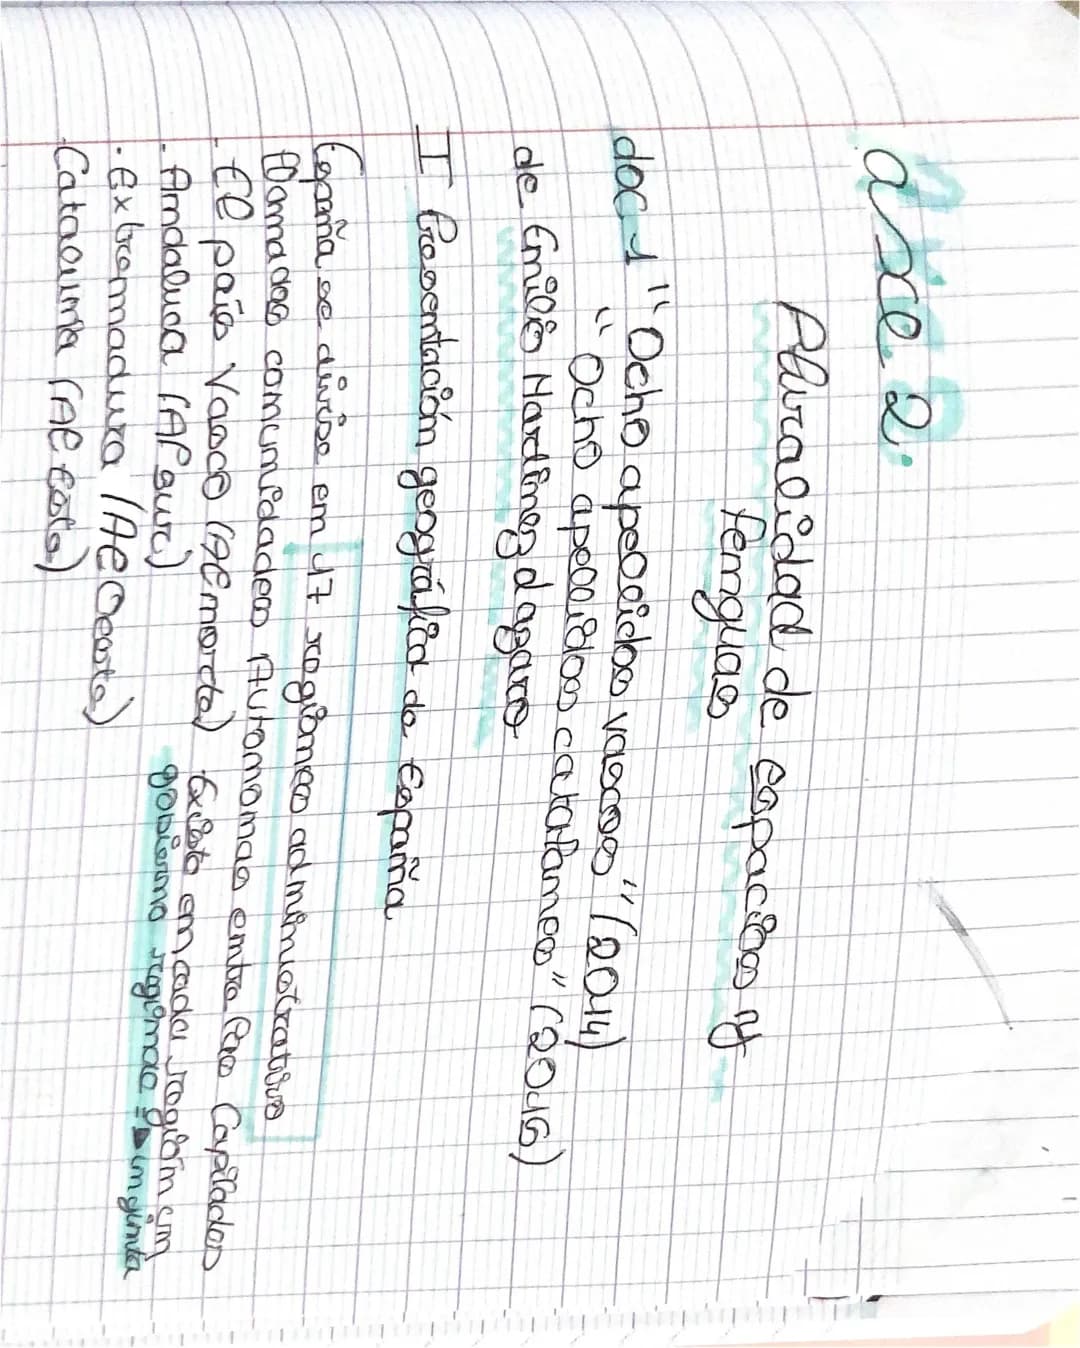 axe 2.
Pluralidad de espacios y
lenguas
doc 1 "Ocho apellidos vascos" (2014)
"Ocho apellidos catalanes" (2015)
de Emilio Martínez dazaro
I Presentación geográfica de España
España se divise en 17 regiones administrativas
llamadas comunidades Autonomas entre las
. El país Vasco (Al norte) Existe en cada región un
. Andaluca (Al sur) gobierno regional => un yunta
. Extremadura (Al Oeste)
. Cataluña (Al Este)